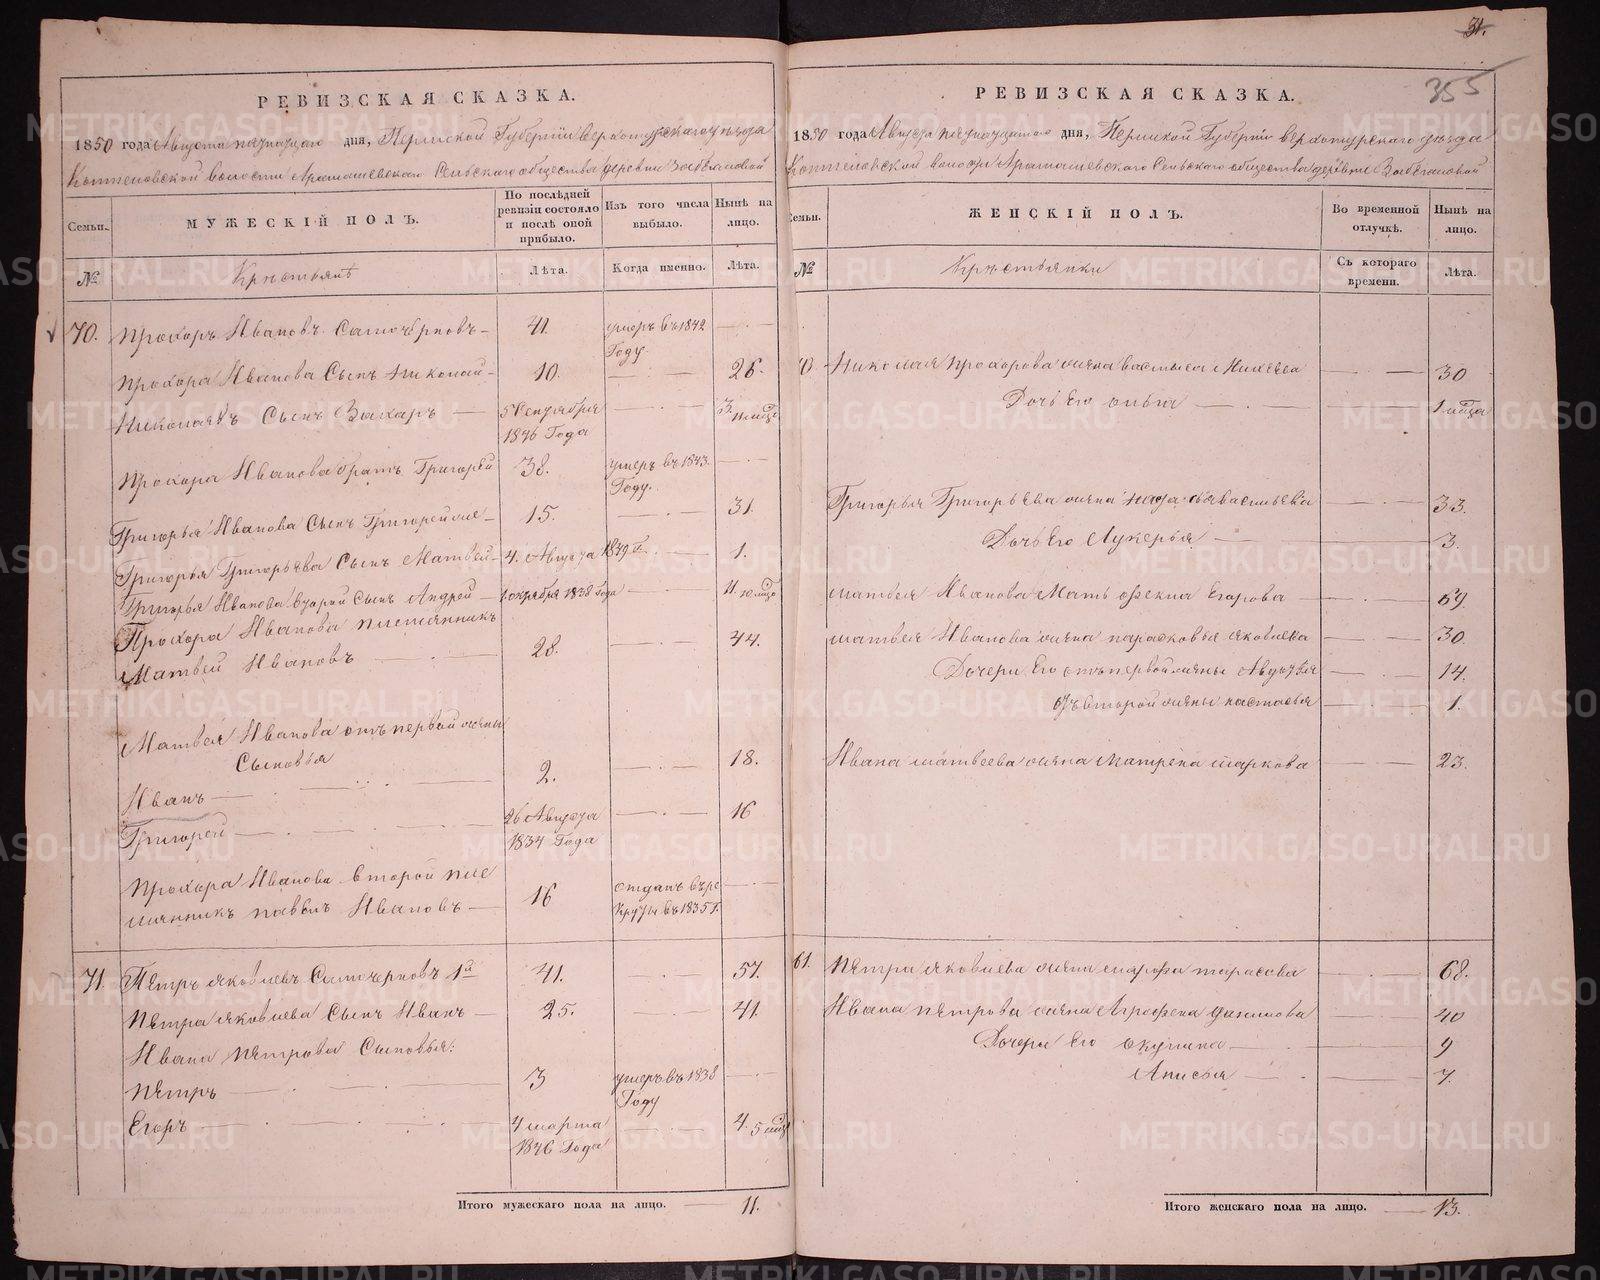 31.
355
РЕВИЗСКАЯ СКАЗКА.
1850 года Августа пятнадцато дня, Пермской Губернии Верхотурского уезда
Коптеловской волости Арамашевского Сельского общества деревни
Семьи.
МУЖЕСКІЙ ПОЛЪ.
По послѣдней ревизіи состояло и послѣ оной прибыло.
Изъ того числа выбыло.
Нынѣ на лицо.
№
Крѣстьянѣ
Лѣта.
Когда именно.
Лѣта.
70.
Прохоръ Ивановъ Самочерновъ
41.
умеръ въ 1842
Году.
Прохора Иванова Сынъ Николай
10.
26.
Николаевъ Сынъ Захаръ
5 Сентября
3. 11 мцъ
1846 Года
Прохора Иванова братъ Григорей
38.
умеръ въ 1843.
Году.
Григорья Иванова Сынъ Григорей же
15.
31.
Григорья Григорьева Сынъ Матвей
4. Августа 1849 г.
1.
Григорья Иванова второй Сынъ Андрей
1. октября 1838 года
11. 10 мцъ
Прохора Иванова племянникъ
Матвей Ивановъ
28.
44.
Матвея Иванова отъ первой жены
Сыновья
Иванъ
2.
18.
Григорей
26 Августа
16
1834 Года
Прохора Иванова второй пле
мянникъ павелъ Ивановъ
16
отданъ въ ре
круты въ 1835 г.
71.
Пѣтръ яковлевъ Самочерновъ 1й
41.
57.
Пѣтра яковлева Сынъ Иванъ
25.
41.
Ивана пѣтрова Сыновья:
Пѣтръ
3
умеръ въ 1838
Году
Егоръ
4 марта
4. 5 мцъ
1846 Года
Итого мужескаго пола на лицо.
11.
РЕВИЗСКАЯ СКАЗКА.
1850 года Августа пятнадцато дня, Пермской Губерніи верхотурского уезда
Коптеловской волости Арамашевского Сельского общества деревни
Семьи.
ЖЕНСКІЙ ПОЛЪ.
Во временной отлучкѣ.
Нынѣ на лицо.
№
Крѣстьянки
Съ котораго времени.
Лѣта.
Николая Прохорова жена васильса Михеева
30
Дочь его
1 мцца
Григорья Григорьева жена васильева
33.
Дочь Его Лукерья
3.
матвея Иванова Мать фекла Егорова
69.
матвея Иванова жена парасковья яковлева
30.
Дочери Его отъ первой жены Авдотья
14.
отъ второй жены настасья
1.
Ивана матвеева жена матрена маркова
23.
61.
Пѣтра яковлева жена марфа тарасова
68.
Ивана пѣтрова жена Агрофена данилова
40
Дочери Его окулина
9
Анисья
7.
Итого женскаго пола на лицо.
13.
METRIKI.GASO-URAL.RU